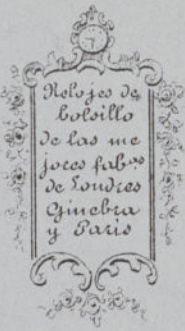 Relojes de
bolsillo
de las me
jores fab.as
de Londres
Ginebra
y Paris